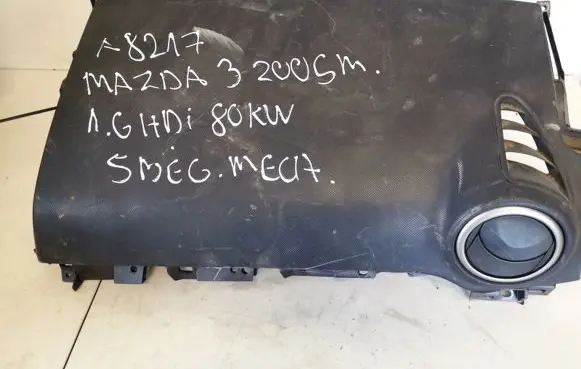 A8217
MAZDA 3 2005m.
1.6 HDi 80KW
5 BEG. MECH.